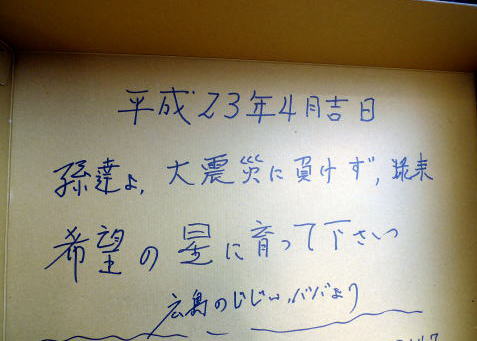 平成23年4月吉日
孫達よ、大震災に負けず、将来
希望の星に育って下さいっ
広島のじじい、ババより